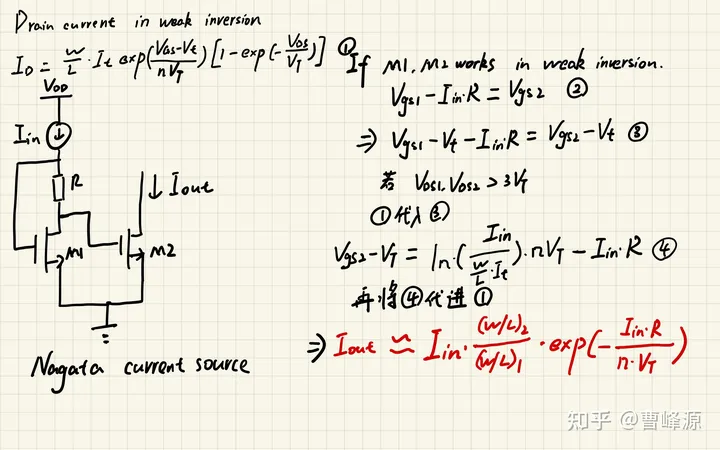 Drain current in weak inversion
I_D = W/L · I_t exp((V_GS-V_t)/(nV_T)) [1-exp(-V_DS/V_T)] ①
V_DD
I_in
R
↓ I_out
M1
M2
Nagata current source
If M1, M2 works in weak inversion.
V_gs1 - I_in·R = V_gs2 ②
⇒ V_gs1 - V_t - I_in·R = V_gs2 - V_t ③
若 V_DS1, V_DS2 > 3V_T
①代入③
V_gs2 - V_T = ln·(I_in/(W/L·I_t))·nV_T - I_in·R ④
再将④代进①
⇒ I_out ≈ I_in · (W/L)_2/(W/L)_1 · exp(-(I_in·R)/(n·V_T))
知乎 @曹峰源